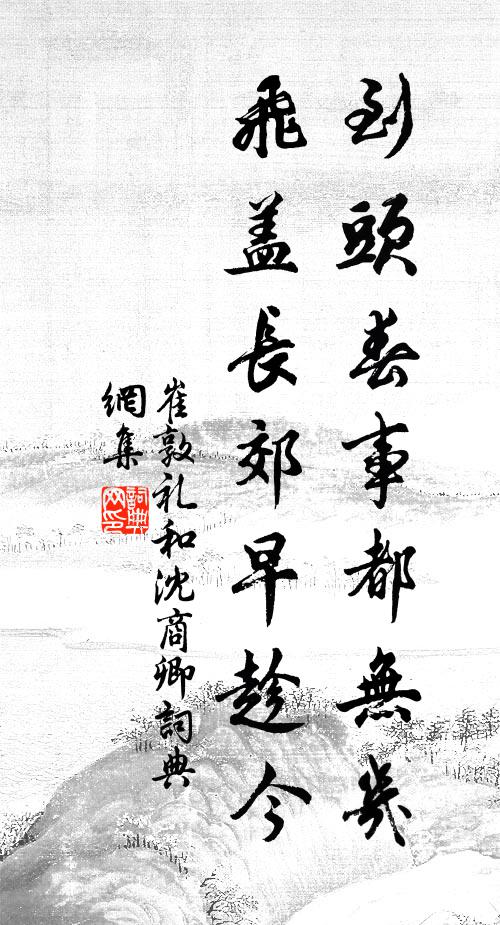 到頭春事都無幾
飛蓋長郊早趁今
崔敦礼和沈商卿詞典
網集
詞典
网印